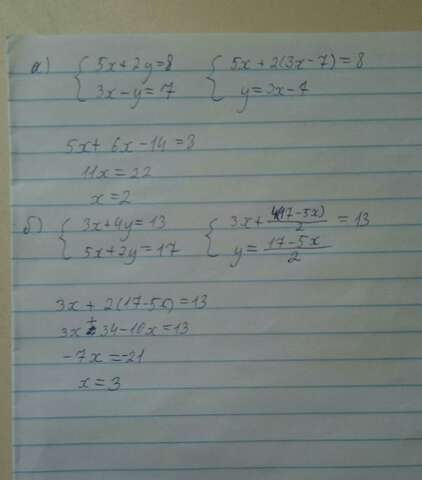 а) { 5x+2y=8 { 5x+2(3x-7)=8
3x-y=7 y=3x-7
5x+6x-14=8
11x=22
x=2
б) { 3x+4y=13 { 3x+4(17-5x)/2=13
5x+2y=17 y=17-5x/2
3x+2(17-5x)=13
3x+34-10x=13
-7x=-21
x=3